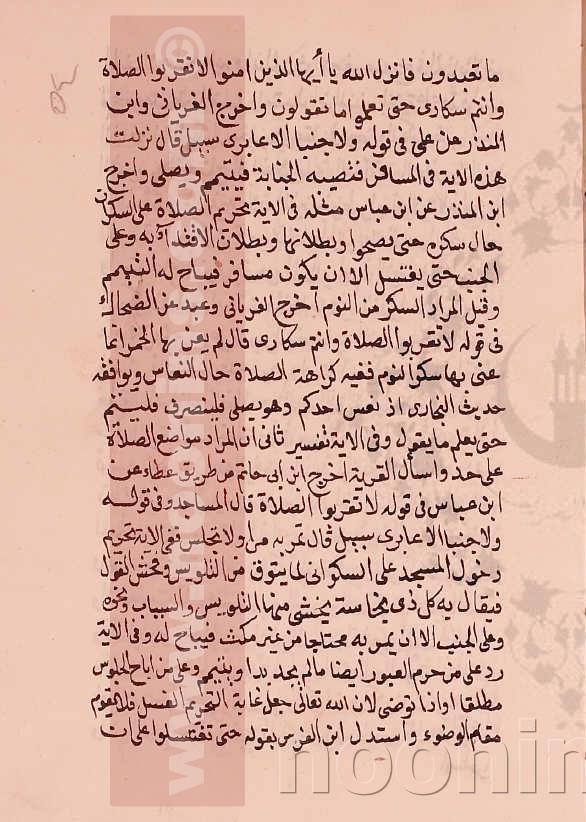 ما تعبدون فانزل الله يا أيها الذين امنوا لا تقربوا الصلاة
وانتم سكارى حتى تعلموا ما تقولون واخرج الفريابي وابن
المنذر عن علي في قوله ولا جنبا الا عابرى سبيل قال نزلت
هذه الاية في المسافر فتصيبه الجنابة فيتيمم ويصلى واخرج
ابن المنذر عن ابن عباس مثله في الاية تحريم الصلاة على السكران
حال سكره حتى يصحوا وبطلانها وبطلان الاقتداء به وعلى
الجنب حتى يغتسل الا ان يكون مسافر فيباح له التيمم
وقيل المراد السكر من النوم اخرج الفريابي وعبد عن الضحاك
في قوله لا تقربوا الصلاة وانتم سكارى قال لم يعن بها الخمر انما
عنى بها سكر النوم ففيه كراهة الصلاة حال النعاس ويوافقه
حديث البخارى اذ نعس احدكم وهو يصلي فلينصرف فلينم
حتى يعلم ما يقول وفي الاية تفسير ثانى ان المراد مواضع الصلاة
على حذ واسأل القرية اخرج ابن ابى حاتم من طريق عطاء عن
ابن عباس في قوله لا تقربوا الصلاة قال المساجد وفي قوله
ولا جنبا الا عابرى سبيل قال تمر به مرا ولا تجلس ففي الاية تحريم
دخول المسجد على السكران لما يتوقع من التلويس وفحش القول
فيقال به كل ذى نجاسة يخشى منها التلويس والسباب ونحوه
وعلى الجنب الا ان يمر به محتاجا من غير مكث فيباح له وفي الاية
رد على من حرم العبور ايضا مالم يجد بدا ويتيمم وعلى من اباح الجلوس
مطلقا او اذا توضى لان الله تعالى جعل غاية التحريم الغسل فلا يقوم
مقام الوضوء واستدل ابن الفرس بقوله حتى تغتسلوا على ان
www.
noonin